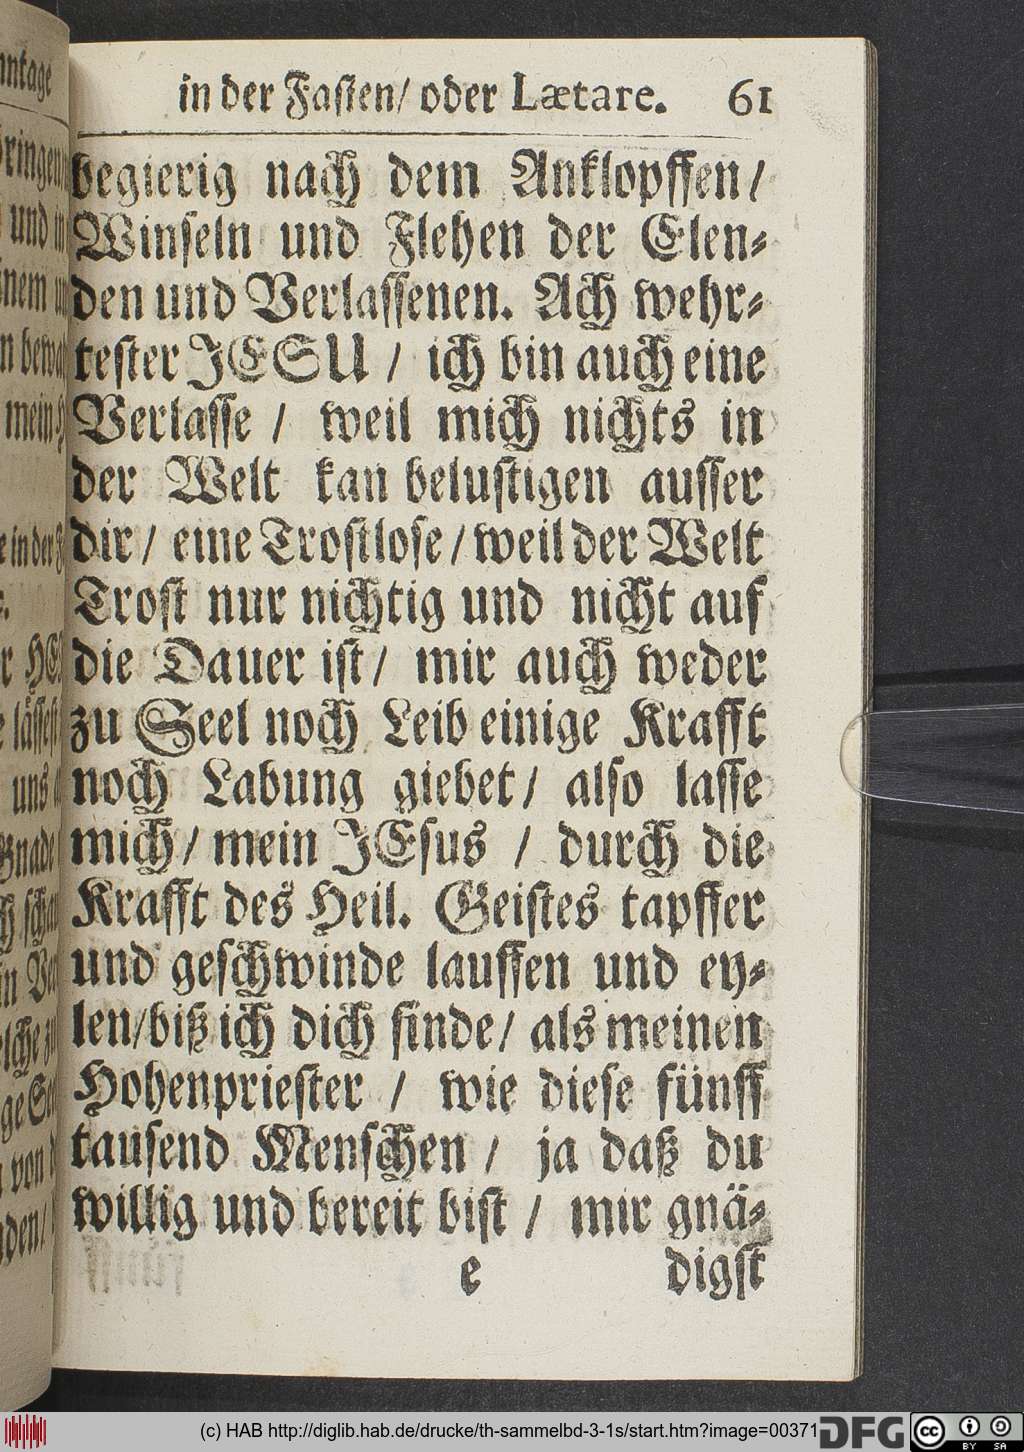 in der Fasten/ oder Lætare. 61
begierig nach dem Anklopffen/
Winseln und Flehen der Elen-
den und Verlassenen. Ach wehr-
tester JESU / ich bin auch eine
Verlasse / weil mich nichts in
der Welt kan belustigen ausser
dir/ eine Trostlose/ weil der Welt
Trost nur nichtig und nicht auf
die Dauer ist/ mir auch weder
zu Seel noch Leib einige Krafft
noch Labung giebet/ also lasse
mich/ mein JEsus / durch die
Krafft des Heil. Geistes tapffer
und geschwinde lauffen und ey-
len/biß ich dich finde/ als meinen
Hohenpriester / wie diese fünff
tausend Menschen / ja daß du
willig und bereit bist / mir gnä-
e digst
(c) HAB http://diglib.hab.de/drucke/th-sammelbd-3-1s/start.htm?image=00371
DFG
cc
BY SA